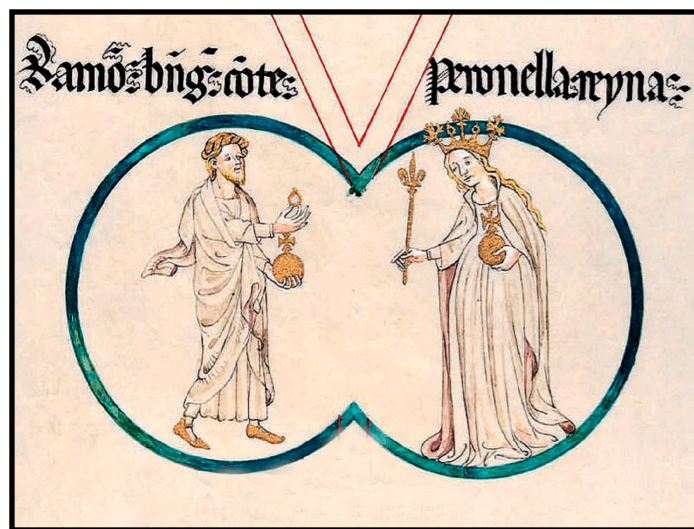 Ramō:bn̄g:cōte:
peronella:reyna: